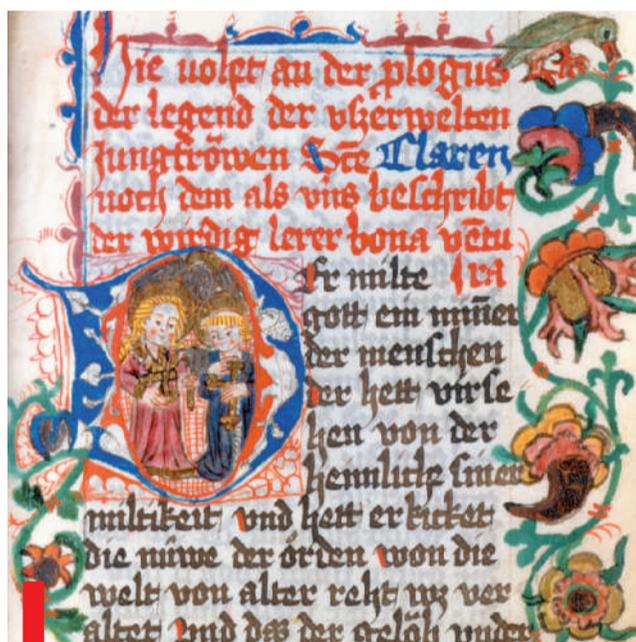 Hie vohet an der plogus
der legend der vszerwelten
Jungfröwen Scte Claren
noch dem als vns beschribt
der wirdig lerer bona ventu
ra
Er milte
gott ein minner
der menschen
der hett virse
hen von der
heimlichy siner
miltikeit vnd hett erkicket
die nüwe der örden won die
welt von alter reht waz ver
altet vnd das der gelöb vnder